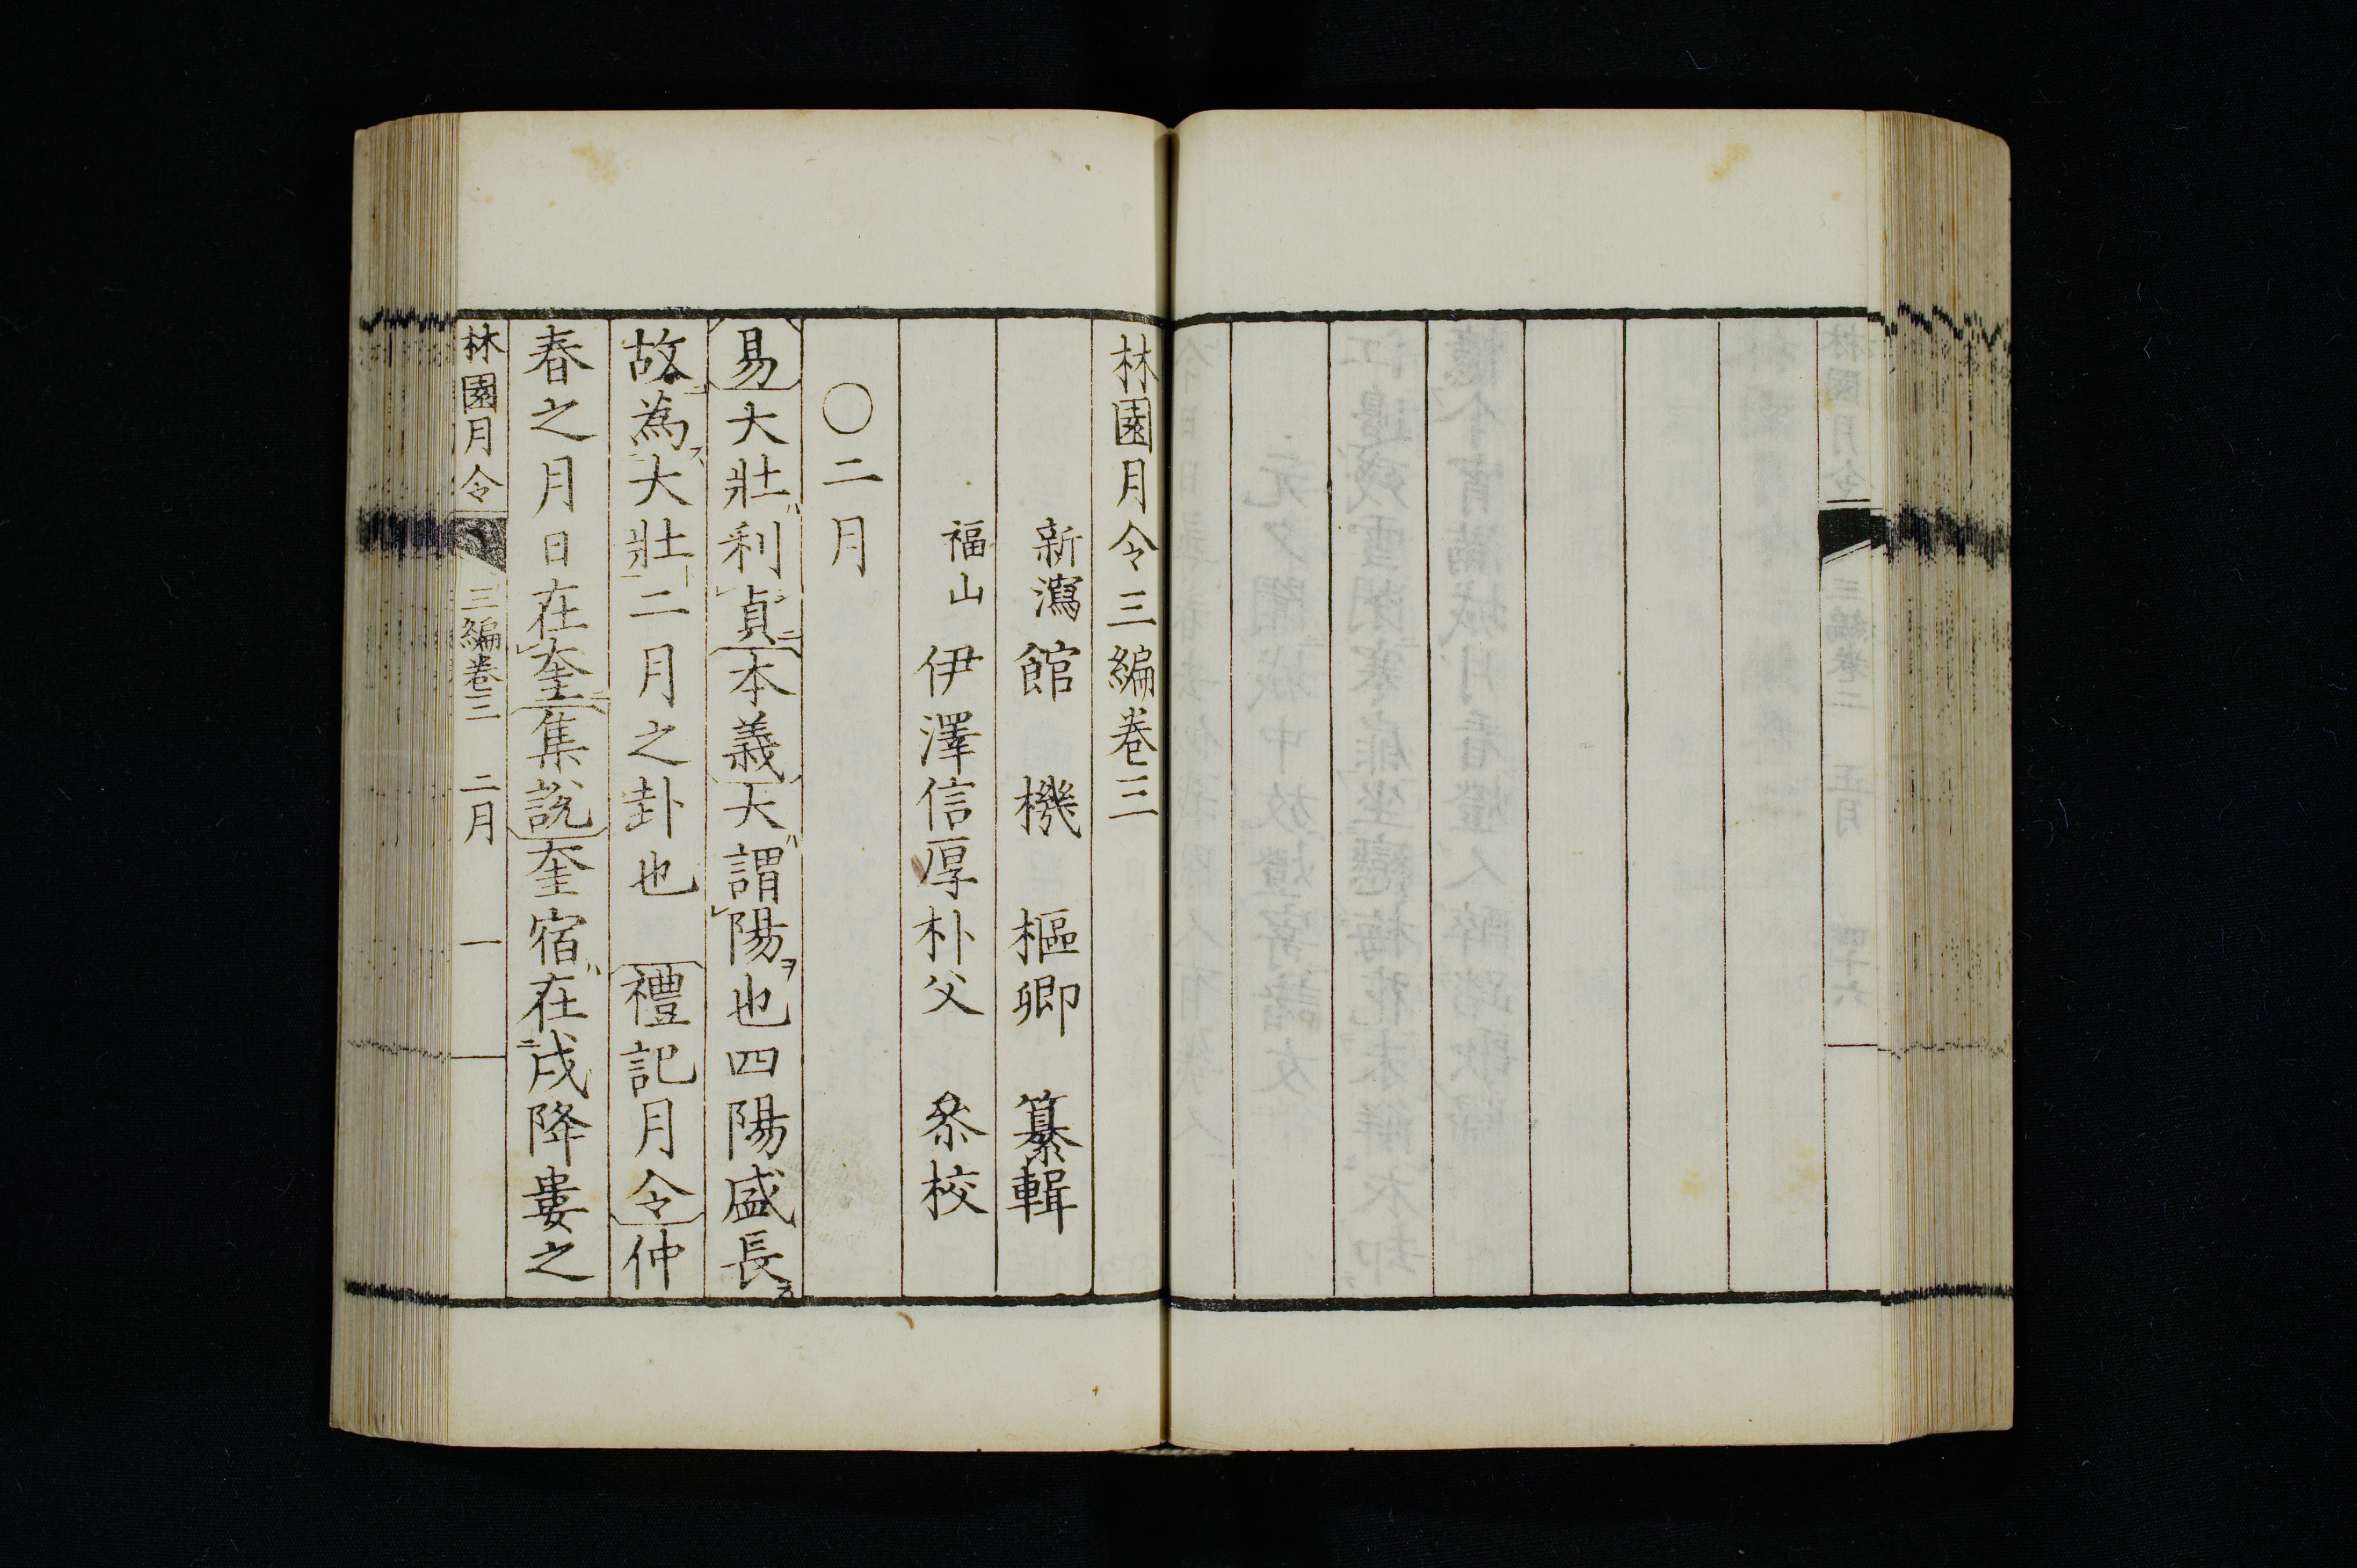 林園月令三編卷三
新瀉 館 機 樞卿 纂輯
福山 伊澤信厚朴父 叅校
〇二月
易大壯利貞本義大謂陽也四陽盛長
故為大壯二月之卦也 禮記月令仲
春之月日在奎集說奎宿在戌降婁之
林園月令 三編卷三 二月 一